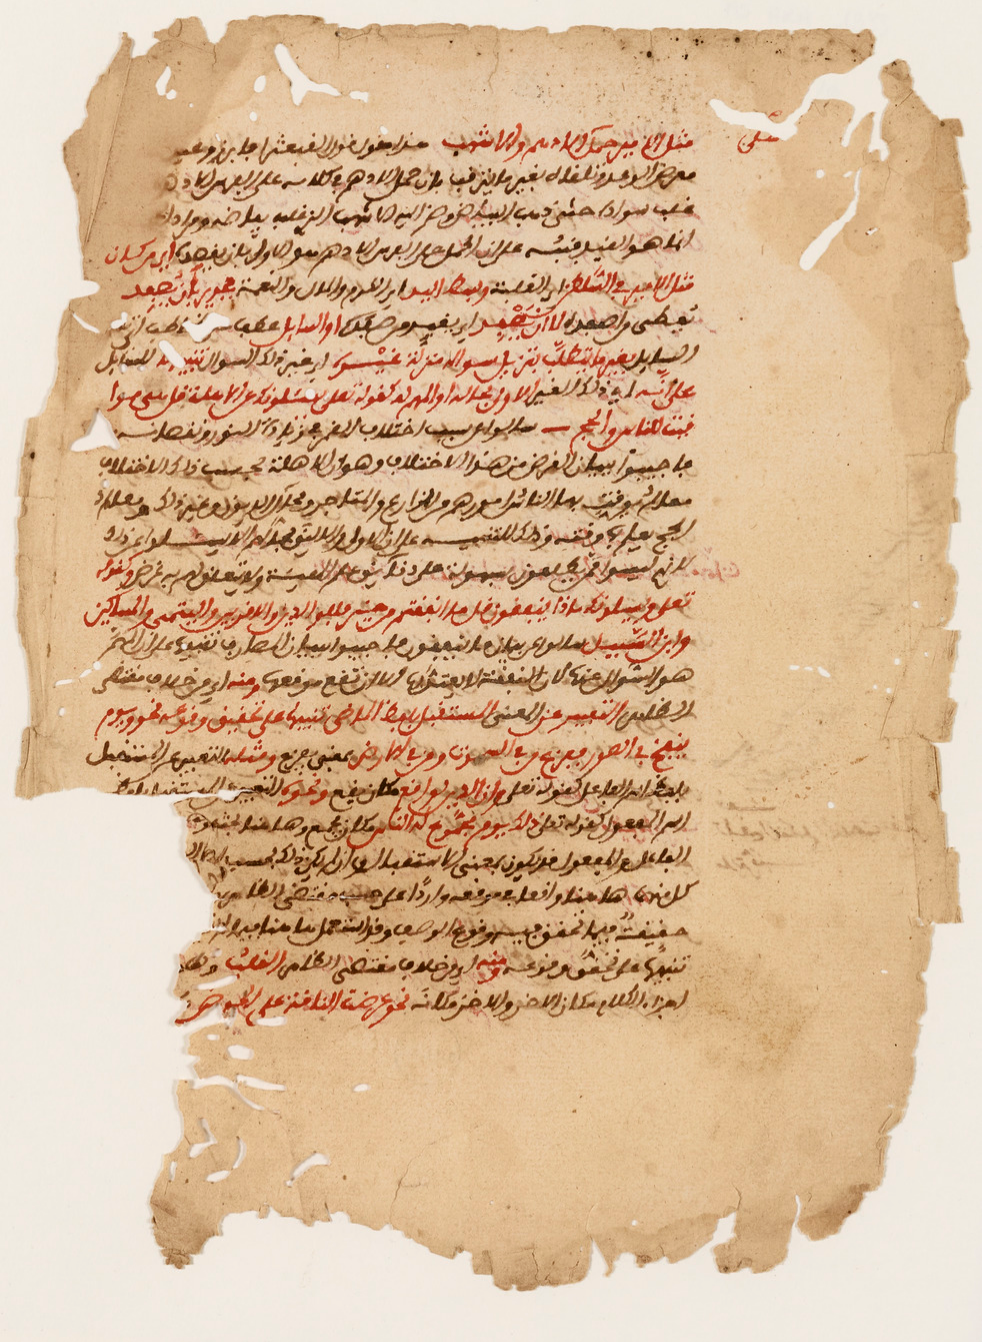 مثل الامير حمل على الادهم والاشهب هذا مفعول قول القبعثرى فابرز وعيد
معرض الوعد وتلقاه بغير ما يترقب بان حمل الادهم في كلامه على الفرس الادهم
غلب سواده حتى ذهب البياض وضم اليه الاشهب الذي غلب بياضه ومراد
انما هو القيد فنبه على ان الحمل على الفرس الادهم هو الاولى بان يقصده اي من كان
مثل الامير في السلطان اي الغلبة وبسط اليد اي الكرم والمال والنعمة فجدير بان يصفد
يعطي من اصفده لا ان يصفد اي يقيد من صفده او السايل عطف على
السايل بغير ما يتطلب بتنزيل سواله منزلة غيره اي غير ذلك السوال تنبيها للسايل
على انه اي ذلك الغير الاولى بحاله او المهم له كقوله تعلى يسئلونك عن الاهلة قل هي موا
قيت للناس والحج سالوا عن سبب اختلاف القمر في زيادة النور ونقصانه
فاجيبوا ببيان الغرض من هذا الاختلاف وهو ان الاهلة بحسب ذلك الاختلاف
معالم يوقت بها الناس امورهم من المزارع والمتاجر ومحال الديون وغير ذلك ومعالم
للحج يعرف بها وقته وذلك للتنبيه على ان الاولى والاليق بحالهم ان يسالوا عن ذلك
لانهم ليسوا ممن يطلعون بسهولة على دقايق علم الهيئة ولا يتعلق لهم به غرض وكقوله
تعلى ويسئلونك ماذا ينفقون قل ما انفقتم من خير فللوالدين والاقربين واليتمى والمساكين
وابن السبيل سالوا عن بيان ما ينفقون فاجيبوا ببيان المصارف تنبيها على ان المهم
هو السوال عنها لان النفقة لا يعتد بها الا ان تقع موقعها ومنه اي من خلاف مقتضى
الظاهر التعبير عن المعنى المستقبل بلفظ الماضي تنبيها على تحقيق وقوعه نحو ويوم
ينفخ في الصور ففزع من في السموت ومن في الارض بمعنى يفزع ومثله التعبير عن المستقبل
بلفظ اسم الفاعل كقوله تعلى وان الدين لواقع مكان يقع ونحوه التعبير عن المستقبل بلفظ
اسم المفعول كقوله تعلى ذلك يوم مجموع له الناس مكان يجمع وهاهنا بحث
الفاعل والمفعول قد يكون بمعنى الاستقبال وان لم يكن ذلك بحسب
كل منهما هاهنا واقعا في موقعه واردا على حسب مقتضى الظاهر
حقيقة فيما تحقق فيه وقوع الوصف وقد استعمل هاهنا فيما لم
تنبيها على تحقق وقوعه ومنه اي من خلاف مقتضى الظاهر القلب وهو
اجزاء الكلام مكان الاخر والاخر مكانه نحو عرضت الناقة على الحوض